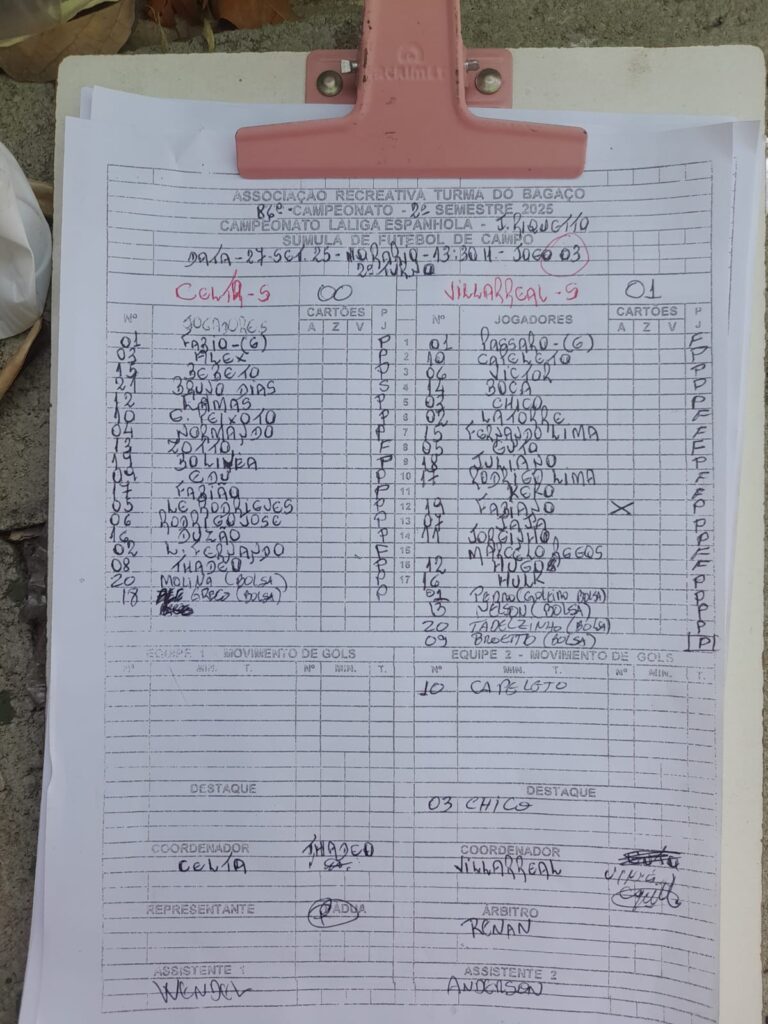 ASSOCIAÇÃO RECREATIVA TURMA DO BAGAÇO
86º - CAMPEONATO - 2º SEMESTRE 2025
CAMPEONATO LALIGA ESPANHOLA - J. RIQUETTO
SÚMULA DE FUTEBOL DE CAMPO
DATA - 27-SET. 25 - HORARIO - 13:30 H - JOGO 03
2º TURNO
CELTA-S 00 VILLARREAL-S 01
Nº JOGADORES CARTÕES P Nº JOGADORES CARTÕES P
A Z V J A Z V J
01 FABIO-(G) P 1 01 PASSARO-(G) F
03 ALEX P 2 10 CAPELETO P
15 BEBETO P 3 06 VICTOR P
21 BRUNO DIAS S 4 14 BOCA P
12 LAMAS P 5 03 CHICO P
10 G. PEIXOTO P 6 02 LATORRE F
04 NORMANDO P 7 15 FERNANDO LIMA F
13 ZOTTO F 8 05 GUTO F
BOLINHA P 9 18 JULIANO P
EDU P 10 17 RODRIGO LIMA F
17 FABIAO P 11 KEKO F
05 LE RODRIGUES P 12 19 FABIANO X P
06 RODRIGO JOSE P 13 07 JAPA P
16 DUZÃO P 14 11 JORGINHO P
02 L. FERNANDO F 15 MARCELO F
08 THADEO P 16 12 HUGO F
20 MOLINA (BOLSA) P 17 16 HULK P
18 GRECO (BOLSA) P 01 PEDRO (GOLEIRO BOLSA) P
13 NELSON (BOLSA) P
20 TADEUZINHO (BOLSA) P
09 BROETTO (BOLSA) P
EQUIPE 1 - MOVIMENTO DE GOLS EQUIPE 2 - MOVIMENTO DE GOLS
Nº MIN. T. Nº MIN. T. Nº MIN. T. Nº MIN. T.
10 CAPELETO
DESTAQUE DESTAQUE
03 CHICO
COORDENADOR THADEO COORDENADOR
CELTA VILLARREAL
REPRESENTANTE PADUA ÁRBITRO
RENAN
ASSISTENTE 1 ASSISTENTE 2
WENDEL ANDERSON